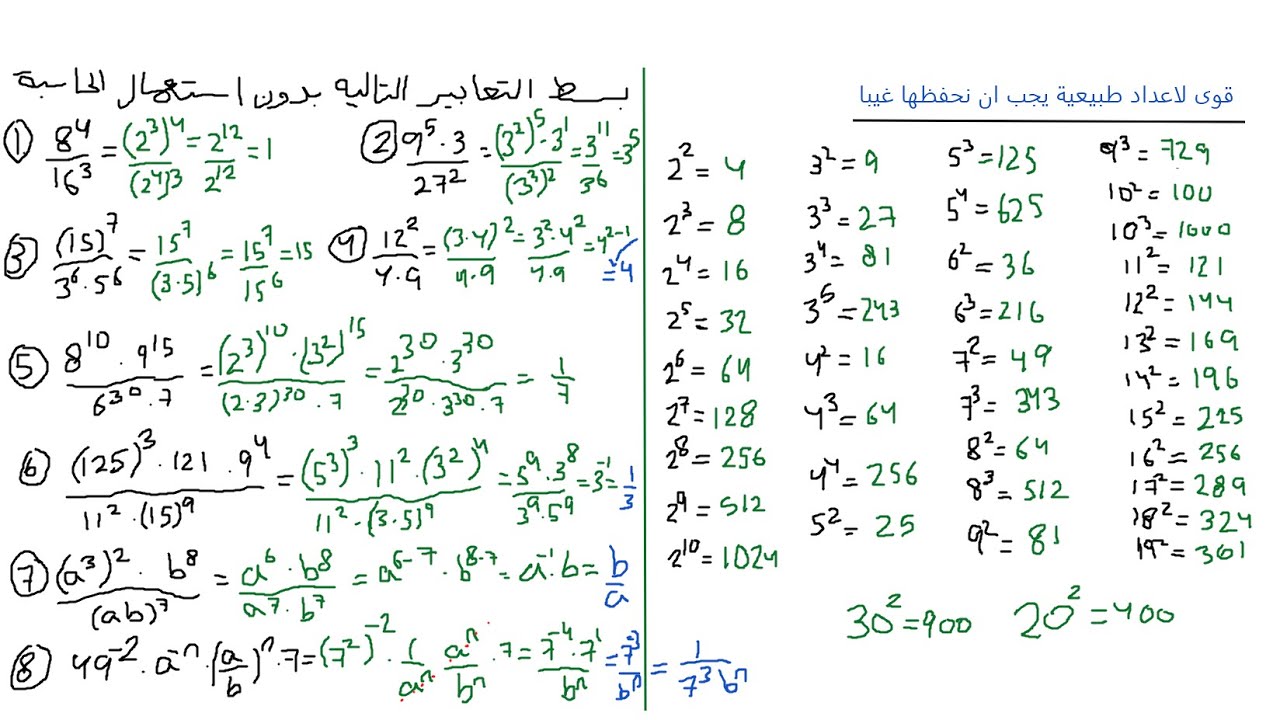 بسط التعابير التاليه بدون استعمال الحاسبة
① 8^4/16^3 = (2^3)^4/(2^4)^3 = 2^12/2^12 = 1
② 9^5·3/27^2 = (3^2)^5·3^1/(3^3)^2 = 3^11/3^6 = 3^5
③ (15)^7/3^6·5^6 = 15^7/(3·5)^6 = 15^7/15^6 = 15
④ 12^2/4·9 = (3·4)^2/4·9 = 3^2·4^2/4·9 = 4^2-1 = 4
⑤ 8^10·9^15/6^30·7 = (2^3)^10·(3^2)^15/(2·3)^30·7 = 2^30·3^30/2^30·3^30·7 = 1/7
⑥ (125)^3·121·9^4/11^2·(15)^9 = (5^3)^3·11^2·(3^2)^4/11^2·(3·5)^9 = 5^9·3^8/3^9·5^9 = 3^-1 = 1/3
⑦ (a^3)^2·b^8/(ab)^7 = a^6·b^8/a^7·b^7 = a^6-7·b^8-7 = a^-1·b = b/a
⑧ 49^-2·a^-n·(a/b)^n·7 = (7^2)^-2·1/a^n·a^n/b^n·7 = 7^-4·7^1/b^n = 7^-3/b^n = 1/7^3 b^n
قوى لاعداد طبيعية يجب ان نحفظها غيبا
2^2 = 4
2^3 = 8
2^4 = 16
2^5 = 32
2^6 = 64
2^7 = 128
2^8 = 256
2^9 = 512
2^10 = 1024
3^2 = 9
3^3 = 27
3^4 = 81
3^5 = 243
4^2 = 16
4^3 = 64
4^4 = 256
5^2 = 25
5^3 = 125
5^4 = 625
6^2 = 36
6^3 = 216
7^2 = 49
7^3 = 343
8^2 = 64
8^3 = 512
9^2 = 81
9^3 = 729
10^2 = 100
10^3 = 1000
11^2 = 121
12^2 = 144
13^2 = 169
14^2 = 196
15^2 = 225
16^2 = 256
17^2 = 289
18^2 = 324
19^2 = 361
30^2 = 900 20^2 = 400